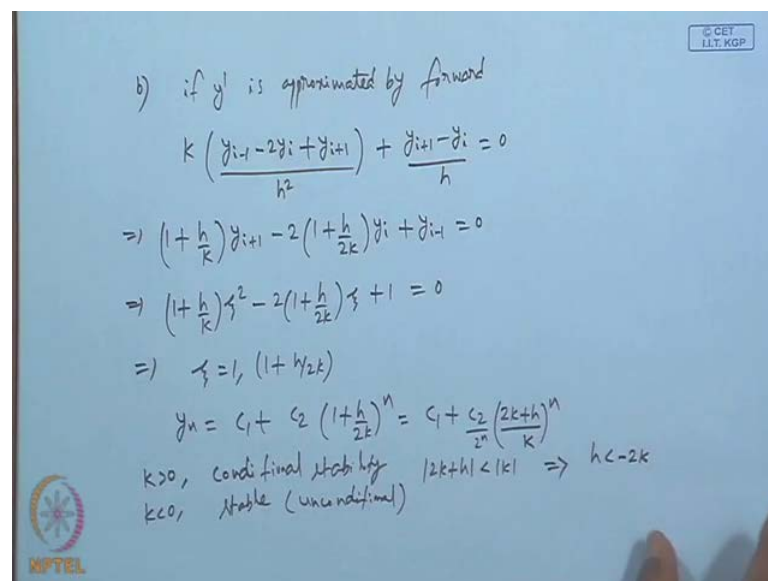 © CET
I.I.T. KGP
b) if y' is approximated by forward
K ( (y_{i-1} - 2y_i + y_{i+1}) / h² ) + (y_{i+1} - y_i) / h = 0
⇒ (1 + h/K) y_{i+1} - 2(1 + h/2K) y_i + y_{i-1} = 0
⇒ (1 + h/K) ξ² - 2(1 + h/2K) ξ + 1 = 0
⇒ ξ = 1, (1 + h/2K)
y_n = c_1 + c_2 (1 + h/2K)^n = c_1 + c_2/2^n ((2K+h)/K)^n
K>0, conditional stability |2K+h| < |K| ⇒ h < -2K
K<0, stable (unconditional)
NPTEL